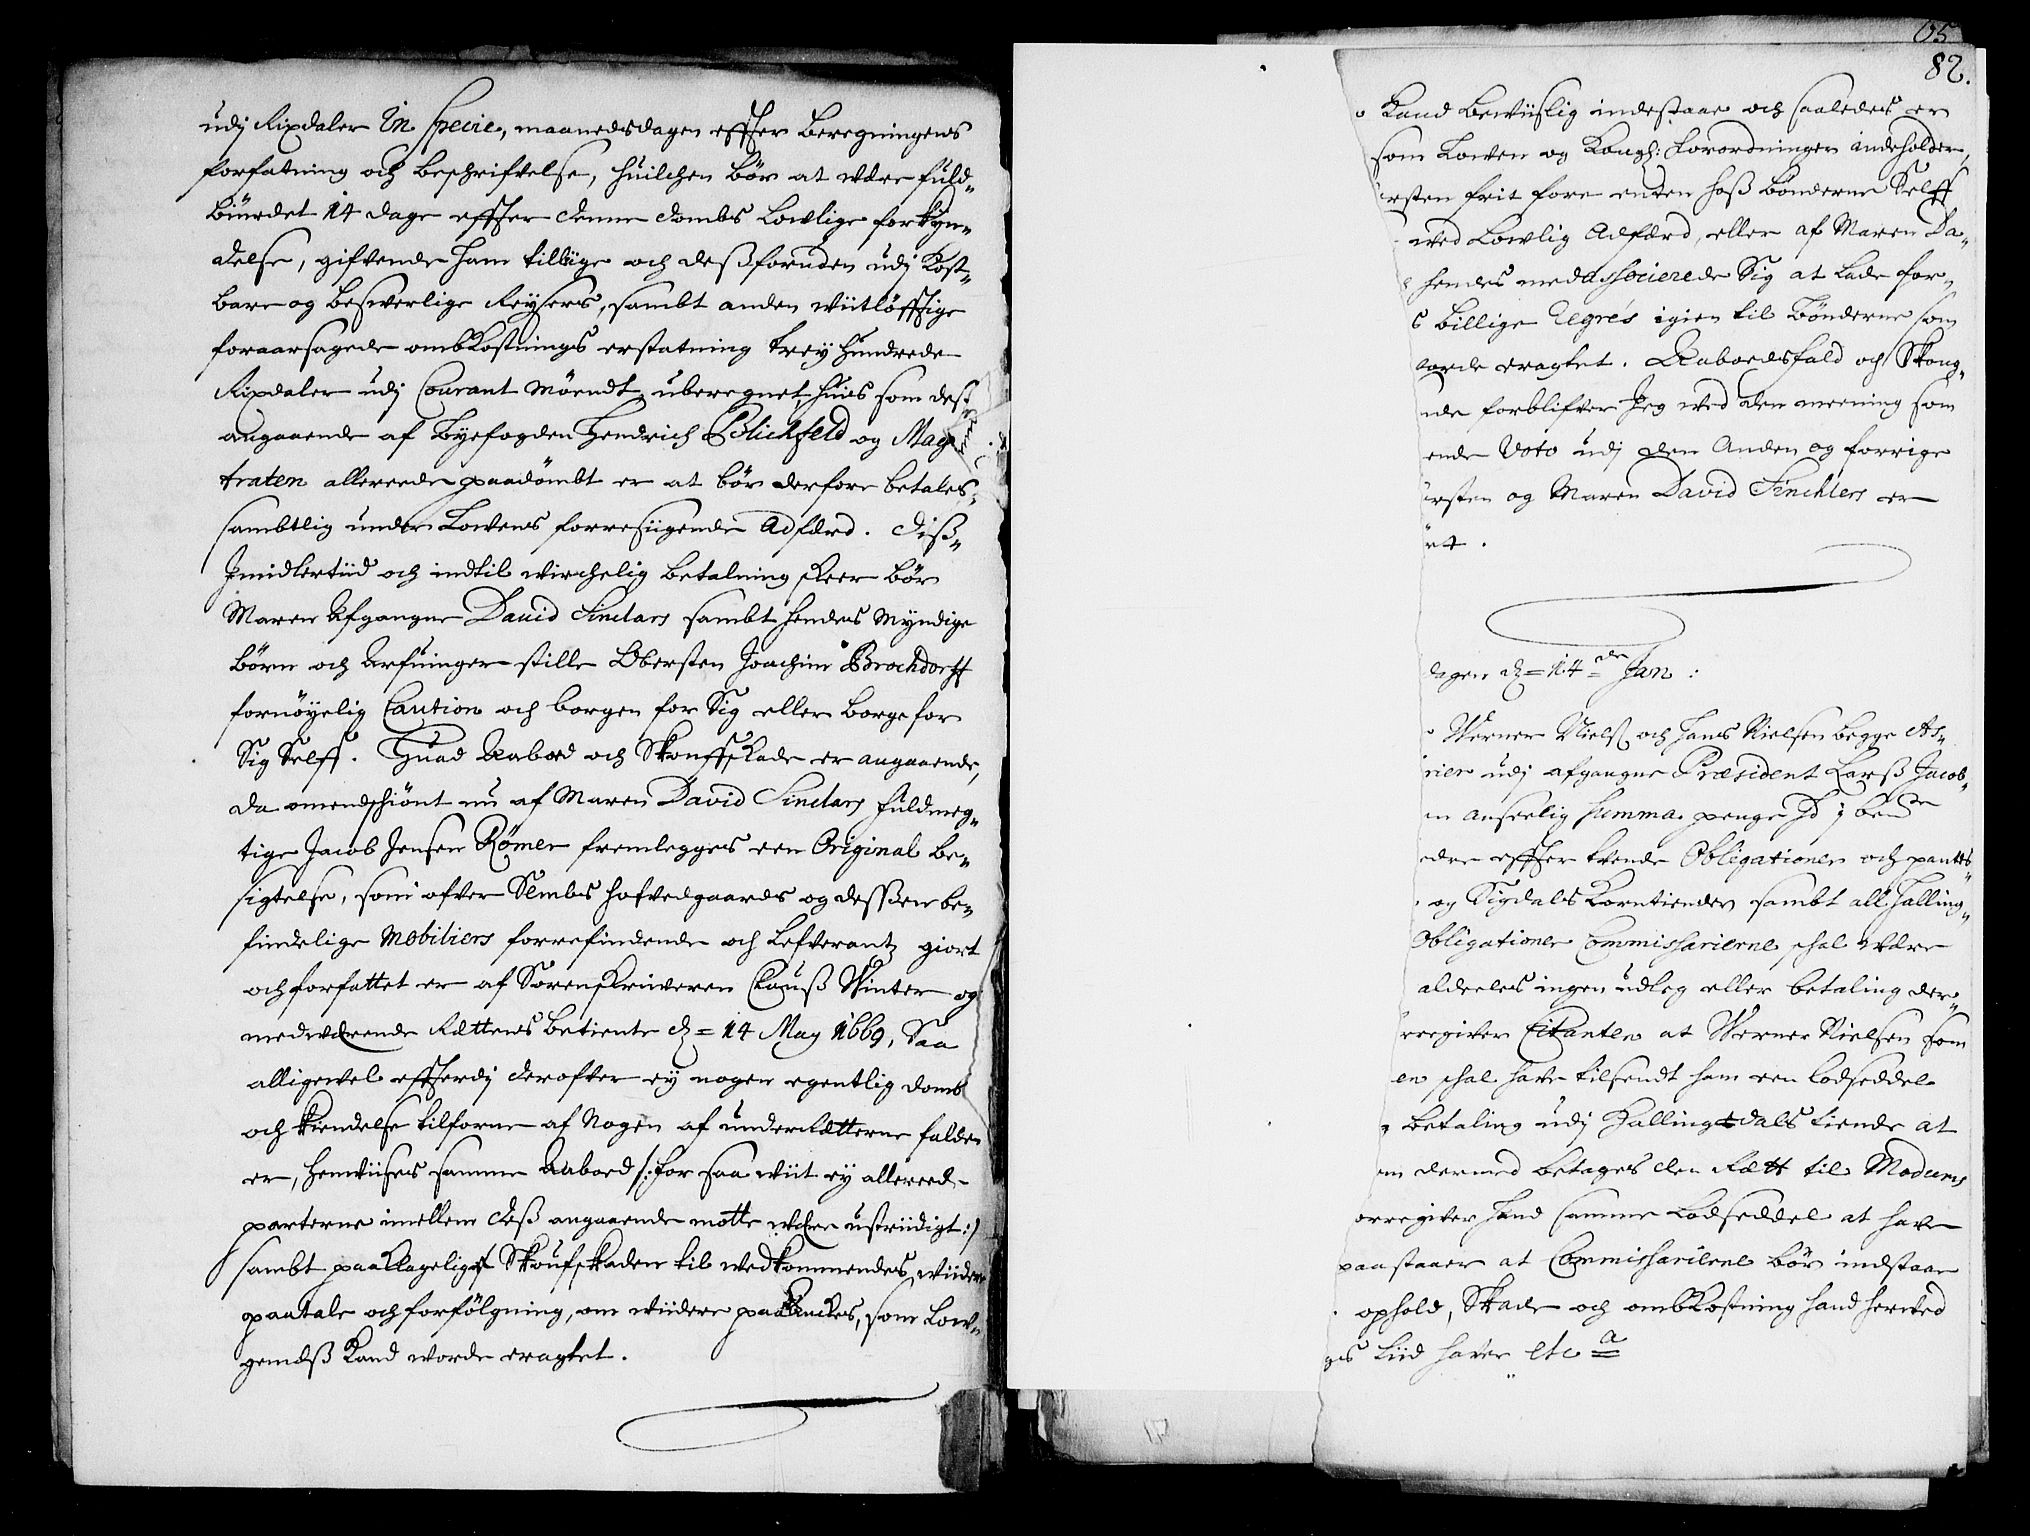 udj Rixdaler In Specie, maanedsdagen effter Beregningens
forfatning och Beschrifvelse, huilchen bör at være fuld-
biürdet 14 dage effter denne dombs Lovlige forkyn-
delse, gifvende ham tillige och desforuden udj Kost-
bare og besverlige Reysers, sambt anden viitløfftige
foraarsagede ombkostnings erstatning trey hundrede
Rixdaler udj Courant Möendt, uberegnet huis som dest
angaaende af Byefogden Hendrich Blichfeld og Magi
straten allereede paadömbt er at bör derfore betales,
sambtlig under Lovens forresiigende Adfærd. Diss-
Imidlertiid och indtil virchelig betalning skeer bör
Maren Afgangne David Sinclars sambt hendes Myndige
Börn och Arfuinger stille Obersten Joachim Brochdorff
fornöyelig Caution och borgen for Sig eller borge for
Sig Selff. Huad Aaboed och Skouffskade er angaaende,
da omendschiönt nu af Maren David Sinclars fuldmeg-
tige Jacob Jensen Römer fremlegges een Original be-
sigtelse, som ofver Sembs hofvedgaards og dessen be-
findelige Mobiliers forrefindende och Lefverantz giort
och forfattet er af Sorenskriveren Clauss Winter og
medværende Rættens betiente d= 14 May 1669, Saa
alligevel effterdj derofver ey nogen egentlig domb
och kiendelse tilforne af Nogen af underRætterne falden
er, henviises samme Aaboed /: for saa viit ey allereede
parterne imellem dess angaaende motte være ustriidigt :/
sambt paaklagelige Skoufskader til vedkommendes viidere
paatale och forfölgning, om viidere paatenckes, som Lov-
gemæss kand vorde eragtet.
82.
Kand beviislig indestaae och saaledes er
som Loven og Kongl: Forordninger indeholder,
rsten frit fore enten hoss bönderne Selff
ved Lovlig Adfærd, eller af Maren Da-
hendes medassocierede Sig at lade for-
s billige Regrés igien til Bönderne som
vorde eragtet. Aaboedsfald och Skoug-
nde forblifver Jeg ved den meening som
ende Voto udj den Anden og forrige
rsten og Maren David Sinchlers er
rt.
dagen d= 14 de Jan:
Werner Niels: och Hans Nielsen begge As-
rier udj afgangne Præsident Larss Jacob-
n anseelig Summa penge
edre effter tvende Obligationer och pants
og Sigdals Korntiender sambt all Halling-
Obligationer Commissarierne schal være
aldeeles ingen udleg eller betaling der-
rregiver Citanten at Werner Nielsen som
en schal have tilsendt ham een Lodseddel
betaling udj Hallingdals tiende at
m dermed betages den Rætt til Modums
orregiver hand samme Lodseddel at have
paastaaer at Commissarierne bör indstaae
ophold, Skade och ombkostning hand herved
ges Liid haver etc a